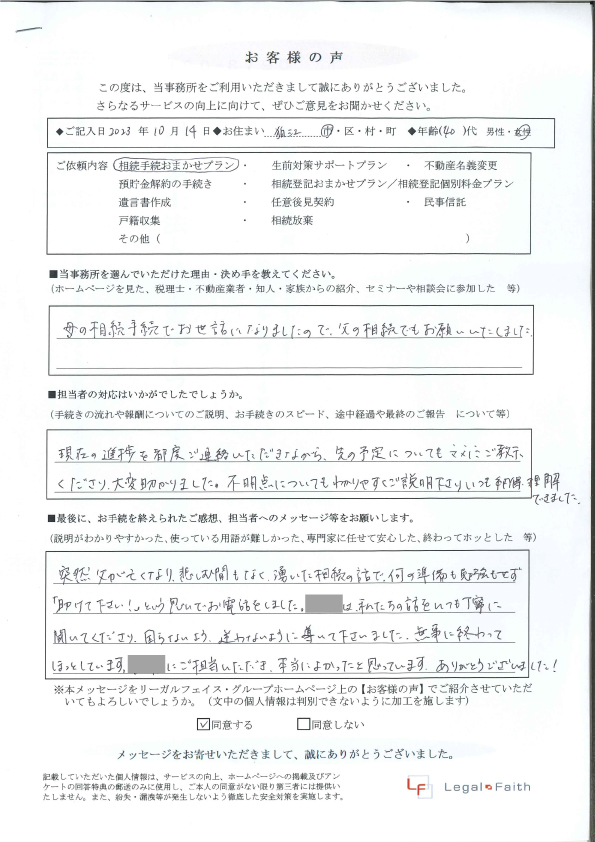 お客様の声
この度は、当事務所をご利用いただきまして誠にありがとうございました。
さらなるサービスの向上に向けて、ぜひご意見をお聞かせください。
◆ご記入日 2023 年 10 月 14 日 ◆お住まい 狛江 市・区・村・町 ◆年齢(40)代 男性・女性
ご依頼内容 相続手続おまかせプラン ・ 生前対策サポートプラン ・ 不動産名義変更
預貯金解約の手続き ・ 相続登記おまかせプラン／相続登記個別料金プラン
遺言書作成 ・ 任意後見契約 ・ 民事信託
戸籍収集 ・ 相続放棄
その他（ ）
■当事務所を選んでいただけた理由・決め手を教えてください。
（ホームページを見た、税理士・不動産業者・知人・家族からの紹介、セミナーや相談会に参加した 等）
母の相続手続でお世話になりましたので、父の相続でもお願いいたしました。
■担当者の対応はいかがでしたでしょうか。
（手続きの流れや報酬についてのご説明、お手続きのスピード、途中経過や最終のご報告 について等）
現在の進捗を都度ご連絡いただきながら、先の予定についてもマメにご教示
くださり、大変助かりました。不明点についてもわかりやすくご説明下さりいつも納得、理解
できました。
■最後に、お手続を終えられたご感想、担当者へのメッセージ等をお願いします。
（説明がわかりやすかった、使っている用語が難しかった、専門家に任せて安心した、終わってホッとした 等）
突然、父が亡くなり、悲しむ間もなく、湧いた相続の話で、何の準備も勉強もせず
「助けて下さい！」という思いでお電話をしました。 は、私たちの話をいつも丁寧に
聞いてくださり、困らないよう、迷わないように導いて下さいました。無事に終わって
ほっとしています。 にご担当いただき、本当によかったと思っています。ありがとうございました！
※本メッセージをリーガルフェイス・グループホームページ上の【お客様の声】でご紹介させていただ
いてもよろしいでしょうか。（文中の個人情報は判別できないように加工を施します）
☑同意する □同意しない
メッセージをお寄せいただきまして、誠にありがとうございました。
記載していただいた個人情報は、サービスの向上、ホームページへの掲載及びアン
ケートの回答特典の郵送のみに使用し、ご本人の同意がない限り第三者には提供い
たしません。また、紛失・漏洩等が発生しないよう徹底した安全対策を実施します。
LF Legal Faith